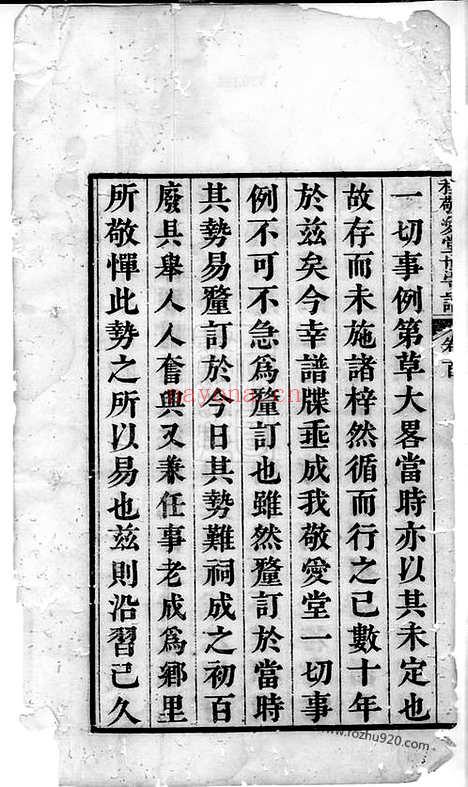 一切事例第草大畧當時亦以其未定也
故存而未施諸梓然循而行之已數十年
於茲矣今幸譜牒乖成我敬愛堂一切事
例不可不急爲釐訂也雖然釐訂於當時
其勢易釐訂於今日其勢難祠成之初百
廢具舉人人奮興又兼任事老成爲鄉里
所敬憚此勢之所以易也茲則沿習已久
nayona.cn
www.rozhu920.com